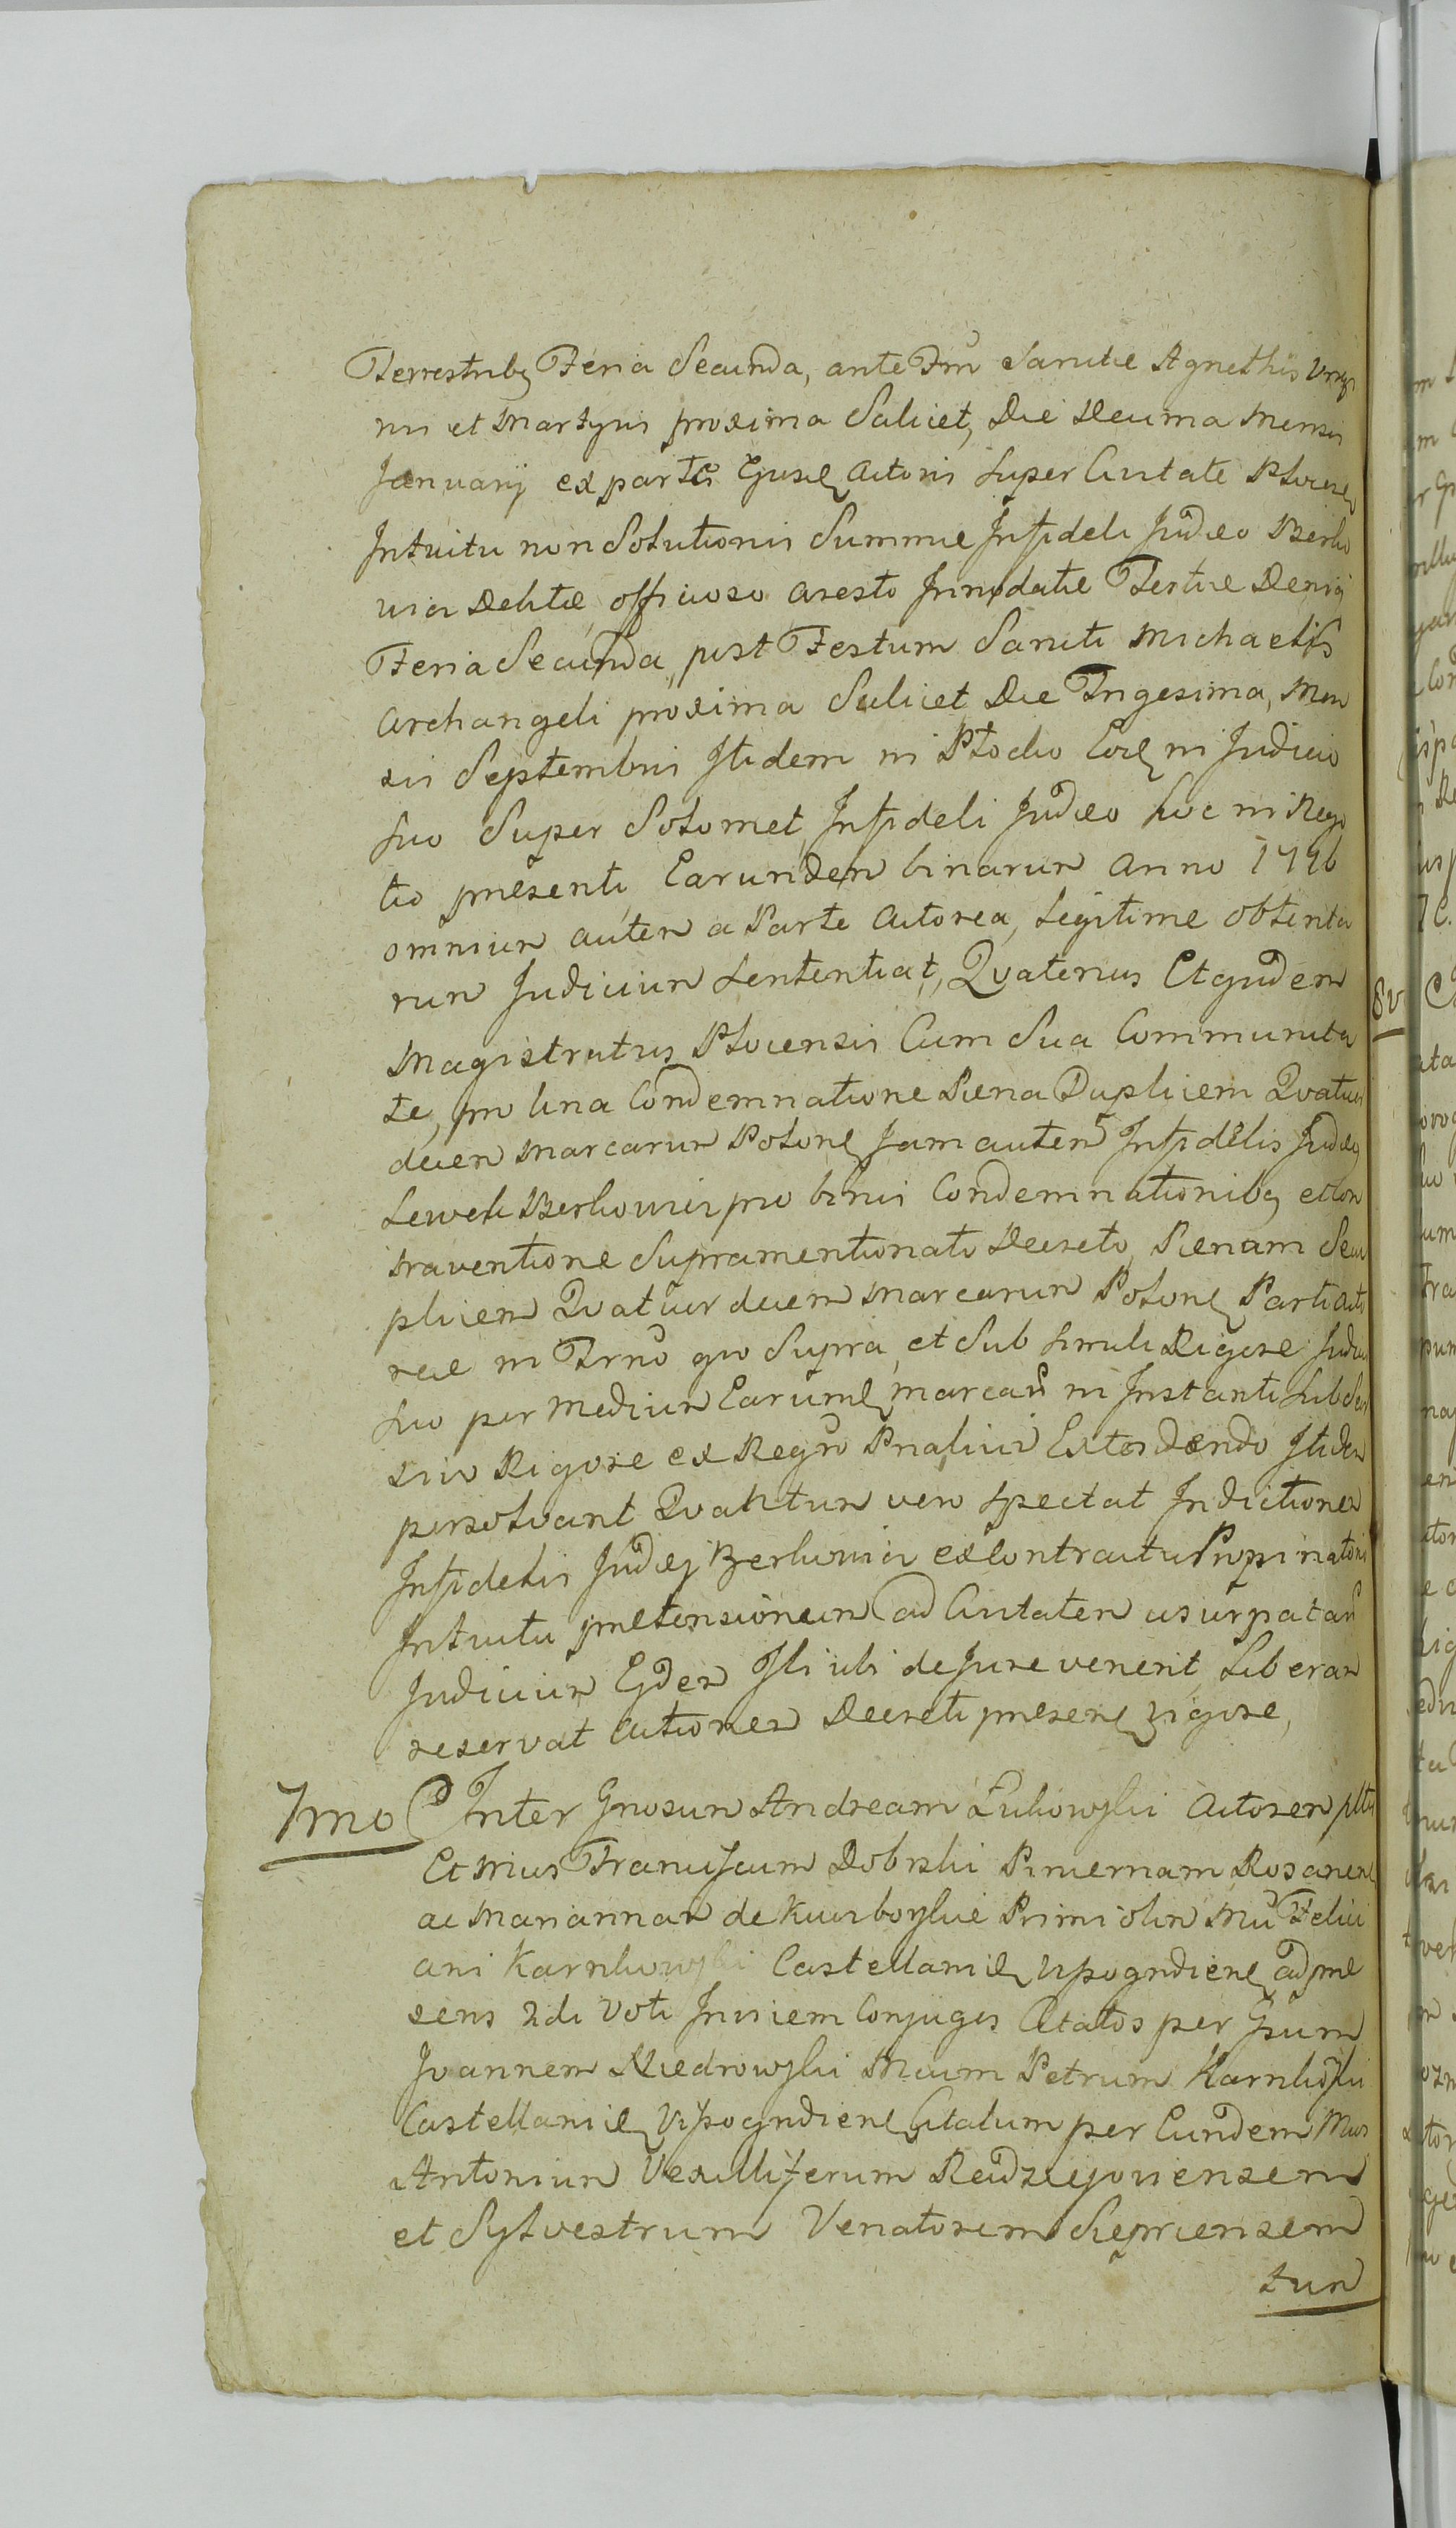 Terrestribg Feria Secunda, ante Ftm Sanctæ Agnethis Virgi
nis et Martyris proxima Scilicet, Die Decima Mensis
Januarij ex partis Ejusd Actoris super Civitate Plocen
Intuitu non Solutionis Summæ Infideli Judæo Berko
vicz Debitæ, officioso aresto Innodatæ Tertiæ Deniq
Feria Secunda, post Festum Sancti Michaelis
Archangeli proxima Scilicet Die Trigesima, Men
sis Septembris Itidem in Plocko Eod in Judicio
suo Super Solomet, Infideli Judæo hoc in Rego
tio præsenti, Earunden binarun Anno 1776
omniun auten a Parte Actorea, Legitime obtenta
run Judiciun Sententiat, Quatenus Ctgudem
Magistratus Plocensis Cum Sua Communita
te, pro bina Condemnatione Pæna Duplicem Quatuor
decem Marcarun Polonl Jam auten Infidelis Judæg
Lewek Berkowicz pro binis Condemnationibg et Con
traventione Supramentionato Decreto, Pænam Sexcu
plicem Quatuor decem Marcarun Polonl Parti Acto
reæ in Trno quo Supra, et Sub simili Rigore Judicio
suo per Mediun Earund marcar in Instanti Sub
rio Rigore ex Regno Pnalivi Extordendo Itiden
persolvant Quantun vero spectat Indictionem
Infidelis Judæj Berkowicz ex Contractu Propinatoris
Intuitu prætensionum ad Civitatem usurpatar
Judiciun Eiden Ibi ubi de Jure venerit, Liberam
reservat Actionem Decreti præsenl vigore,
7mo Inter Gnosun Andream Lukowski Actorem pltm
Et Mcus Franciscum Dobrski Pincernam Rosanenl
ac Mariannan de Karboyskie Primi olin Mci Felici
ani Karnkowski Castellanid Uyscogrdienl ad præ
sens 2di Voti Invicem Conjuges Citatos per Gsum
Joannem Niedrowski Mcum Petrum Karnkoski
Castellanid Vyszogrdienl Citatum per Eundem Mcos
Antoniun Vexilliferum Radziejoviensem
et Sylvestrum Venatorem Sieprcensem
tun
8v